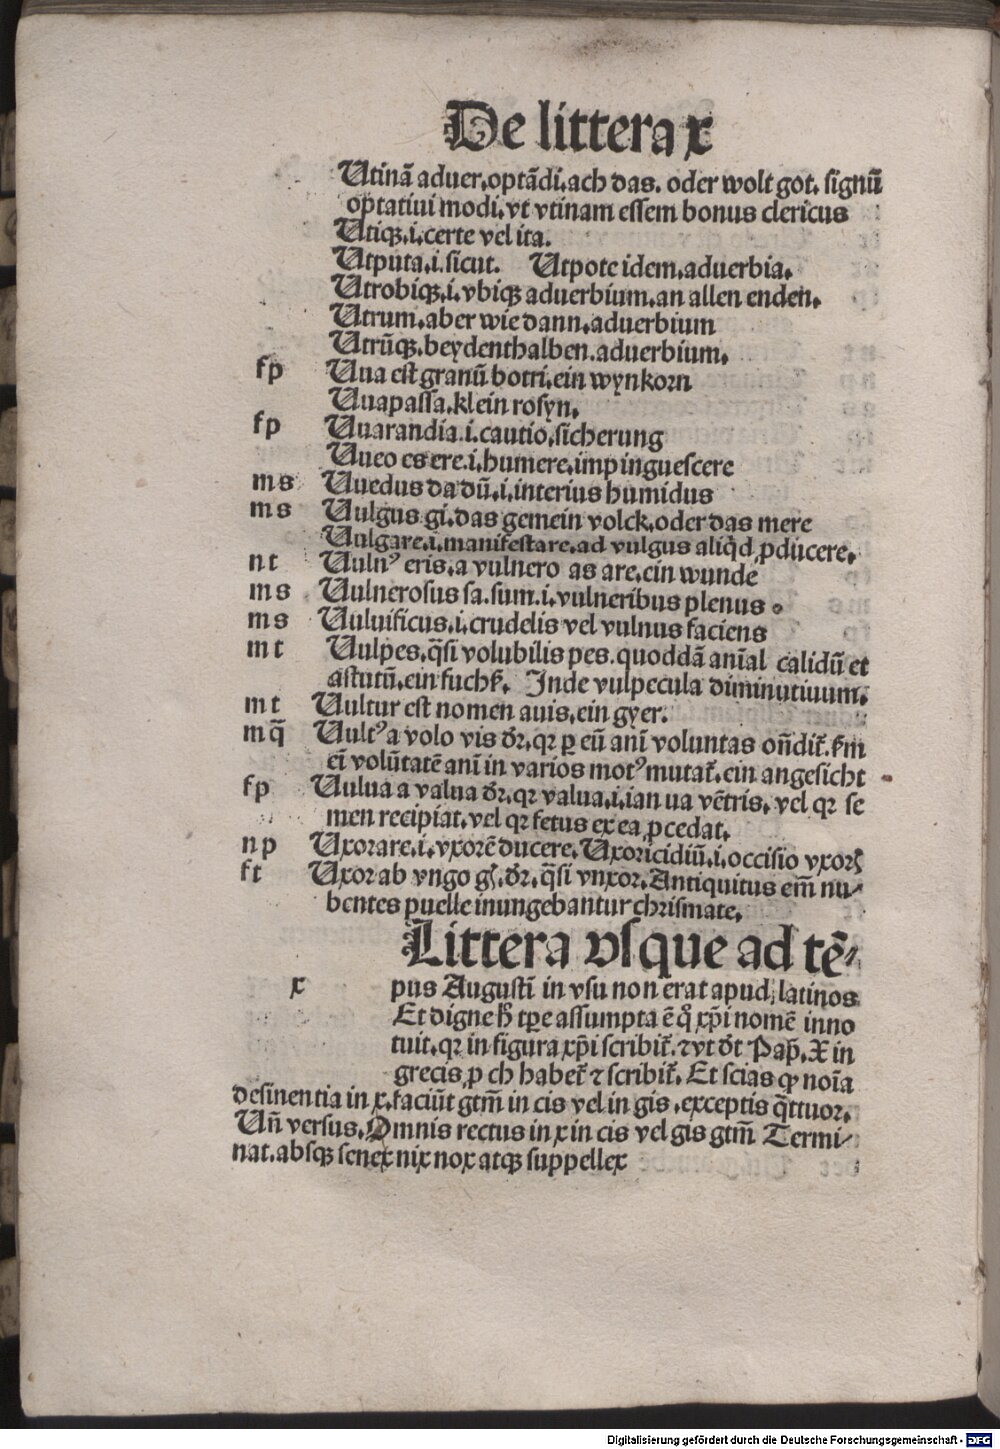 De littera x
Utinā aduer.optādi.ach das. oder wolt got. signū
optatiui modi.vt vtinam essem bonus clericus
Utiqꝫ.i.certe vel ita.
Utputa.i.sicut. Utpote idem.aduerbia.
Utrobiqꝫ.i.vbiqꝫ aduerbium.an allen enden.
Utrum.aber wie dann.aduerbium
Utrūqꝫ.beydenthalben.aduerbium.
fp Uua est granū botri.ein wynkorn
Uuapassa.klein rosyn.
fp Uuarandia.i.cautio.sicherung
Uueo es ere.i.humere.impinguescere
ms Uuedus da dū.i.interius humidus
ms Uulgus gi.das gemein volck.oder das mere
Uulgare.i.manifestare.ad vulgus aliq̄d ꝓducere.
nt Uulnꝰ eris.a vulnero as are.ein wunde
ms Uulnerosus sa.sum.i.vulneribus plenus.
ms Uulnificus.i.crudelis vel vulnus faciens
mt Uulpes.q̄si volubilis pes.quoddā anīal calidū et
astutū.ein fuchß. Inde vulpecula diminutiuum.
mt Uultur est nomen auis.ein gyer.
mq̄ Uultꝰ a volo vis dr̄.qꝛ ꝑ eū anī voluntas on̄dit̄.km
eī volūtatē anī in varios motꝰ mutat̄.ein angesicht
fp Uulua a valua dr̄.qꝛ valua.i.ianua vētris.vel qꝛ se
men recipiat.vel qꝛ fetus ex ea ꝓcedat.
np Uxorare.i.vxorē ducere.Uxoricidiū.i.occisio vxorꝭ
ft Uxor ab vngo gꝭ.dr̄.q̄si vnxor.Antiquitus em̄ nu⸗
bentes puelle inungebantur chrismate.
Littera vsque ad tē⸗
x pus Augustī in vsu non erat apud latinos
Et digne h̄ tꝑe assumpta ē qͦ xp̄i nomē inno
tuit.qꝛ in figura xp̄i scribit̄.⁊ vt dt̄ Pap̄.X in
grecis ꝓ ch habet̄ ⁊ scribit̄. Et scias ꝙ noīa
desinentia in x.faciūt gtm̄ in cis vel in gis.exceptis q̄ttuor.
Un̄ versus.Omnis rectus in x in cis vel gis gtm̄ Termi⸗
nat.absqꝫ senex nix nox atqꝫ suppellex
Digitalisierung gefördert durch die Deutsche Forschungsgemeinschaft - DFG